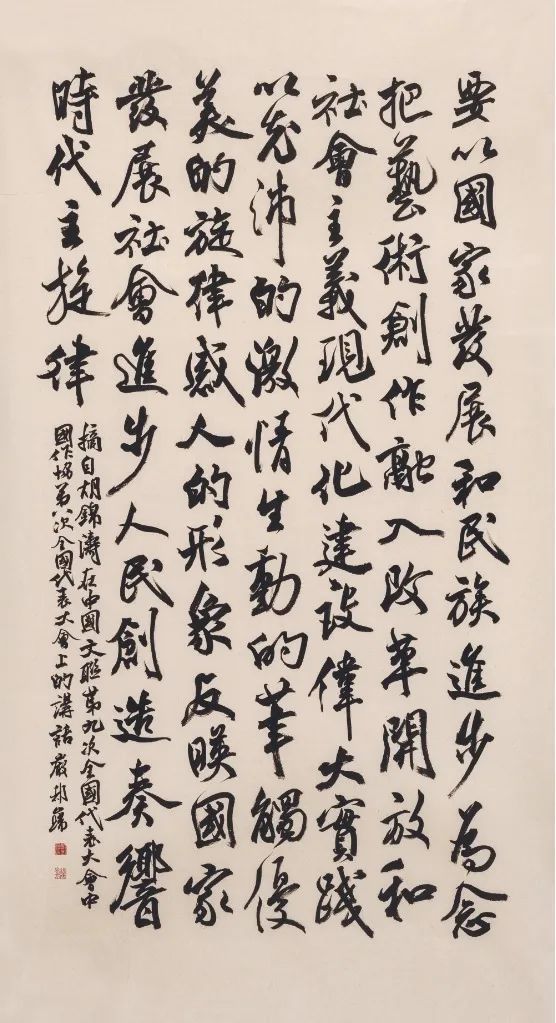 要以國家發展和民族進步為念
把藝術創作融入改革開放和
社會主義現代化建設偉大實踐
以充沛的激情生動的筆觸優
美的旋律感人的形象反映國家
發展社會進步人民創造奏響
時代主旋律
摘自胡錦濤在中國文聯第九次全國代表大會中
國作協第八次全國代表大會上的講話 嚴